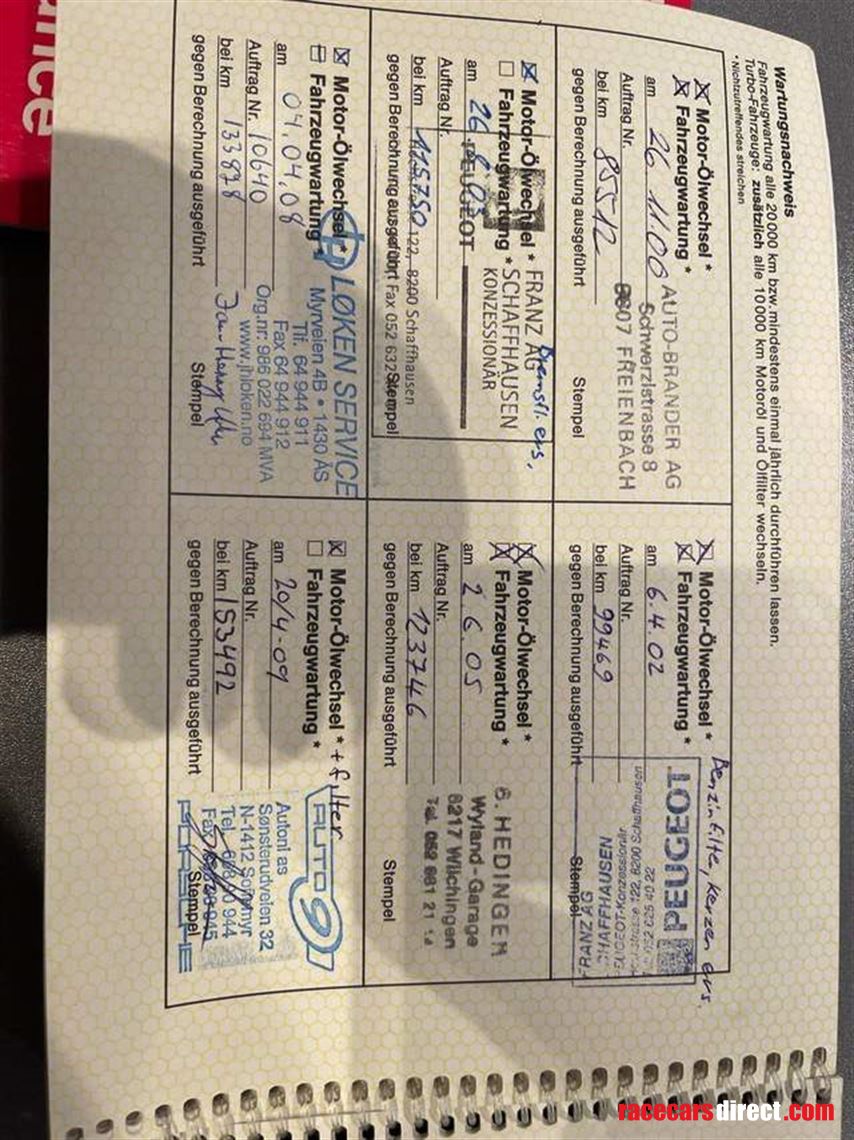 Wartungsnachweis
Fahrzeugwartung alle 20 000 km bzw. mindestens einmal jährlich durchführen lassen.
Turbo-Fahrzeuge: zusätzlich alle 10 000 km Motoröl und Ölfilter wechseln.
* Nichtzutreffendes streichen
Motor-Ölwechsel *
Fahrzeugwartung *
am 26 11.00
Auftrag Nr.
bei km 85512
gegen Berechnung ausgeführt
AUTO-BRANDER AG
Schwerzistrasse 8
8807 FREIENBACH
Stempel
Benzinfilter, kerzen ers,
Motor-Ölwechsel *
Fahrzeugwartung *
am 6.4.02
Auftrag Nr.
bei km 99469
gegen Berechnung ausgeführt
PEUGEOT
FRANZ AG
SCHAFFHAUSEN
PEUGEOT-Konzessionär
Stempel
Motor-Ölwechsel *
Fahrzeugwartung *
am 26
Auftrag Nr.
bei km 115750
gegen Berechnung ausgeführt
Bremsfl. ers,
PEUGEOT
FRANZ AG
SCHAFFHAUSEN
KONZESSIONÄR
122, 8200 Schaffhausen
Fax 052 632
Stempel
Motor-Ölwechsel *
Fahrzeugwartung *
am 2.6.05
Auftrag Nr.
bei km 123746
gegen Berechnung ausgeführt
HEDINGER
Wyland-Garage
8217 Wilchingen
Tel. 052 681 21
Stempel
Motor-Ölwechsel *
Fahrzeugwartung *
am 04.04.08
Auftrag Nr. 10640
bei km 133878
gegen Berechnung ausgeführt
LØKEN SERVICE
Myrveien 4B • 1430 ÅS
Tlf. 64 944 911
Fax 64 944 912
Org.nr: 986 022 694 MVA
www.jhloken.no
Stempel
Motor-Ölwechsel * + filter
Fahrzeugwartung *
am 20/4-09
Auftrag Nr.
bei km 153492
gegen Berechnung ausgeführt
AUTO 9
Autoni as
Sønsterudveien 32
N-1412 Sofiemyr
Tel.
944
Fax
945
PORSCHE
Stempel
racecarsdirect.com